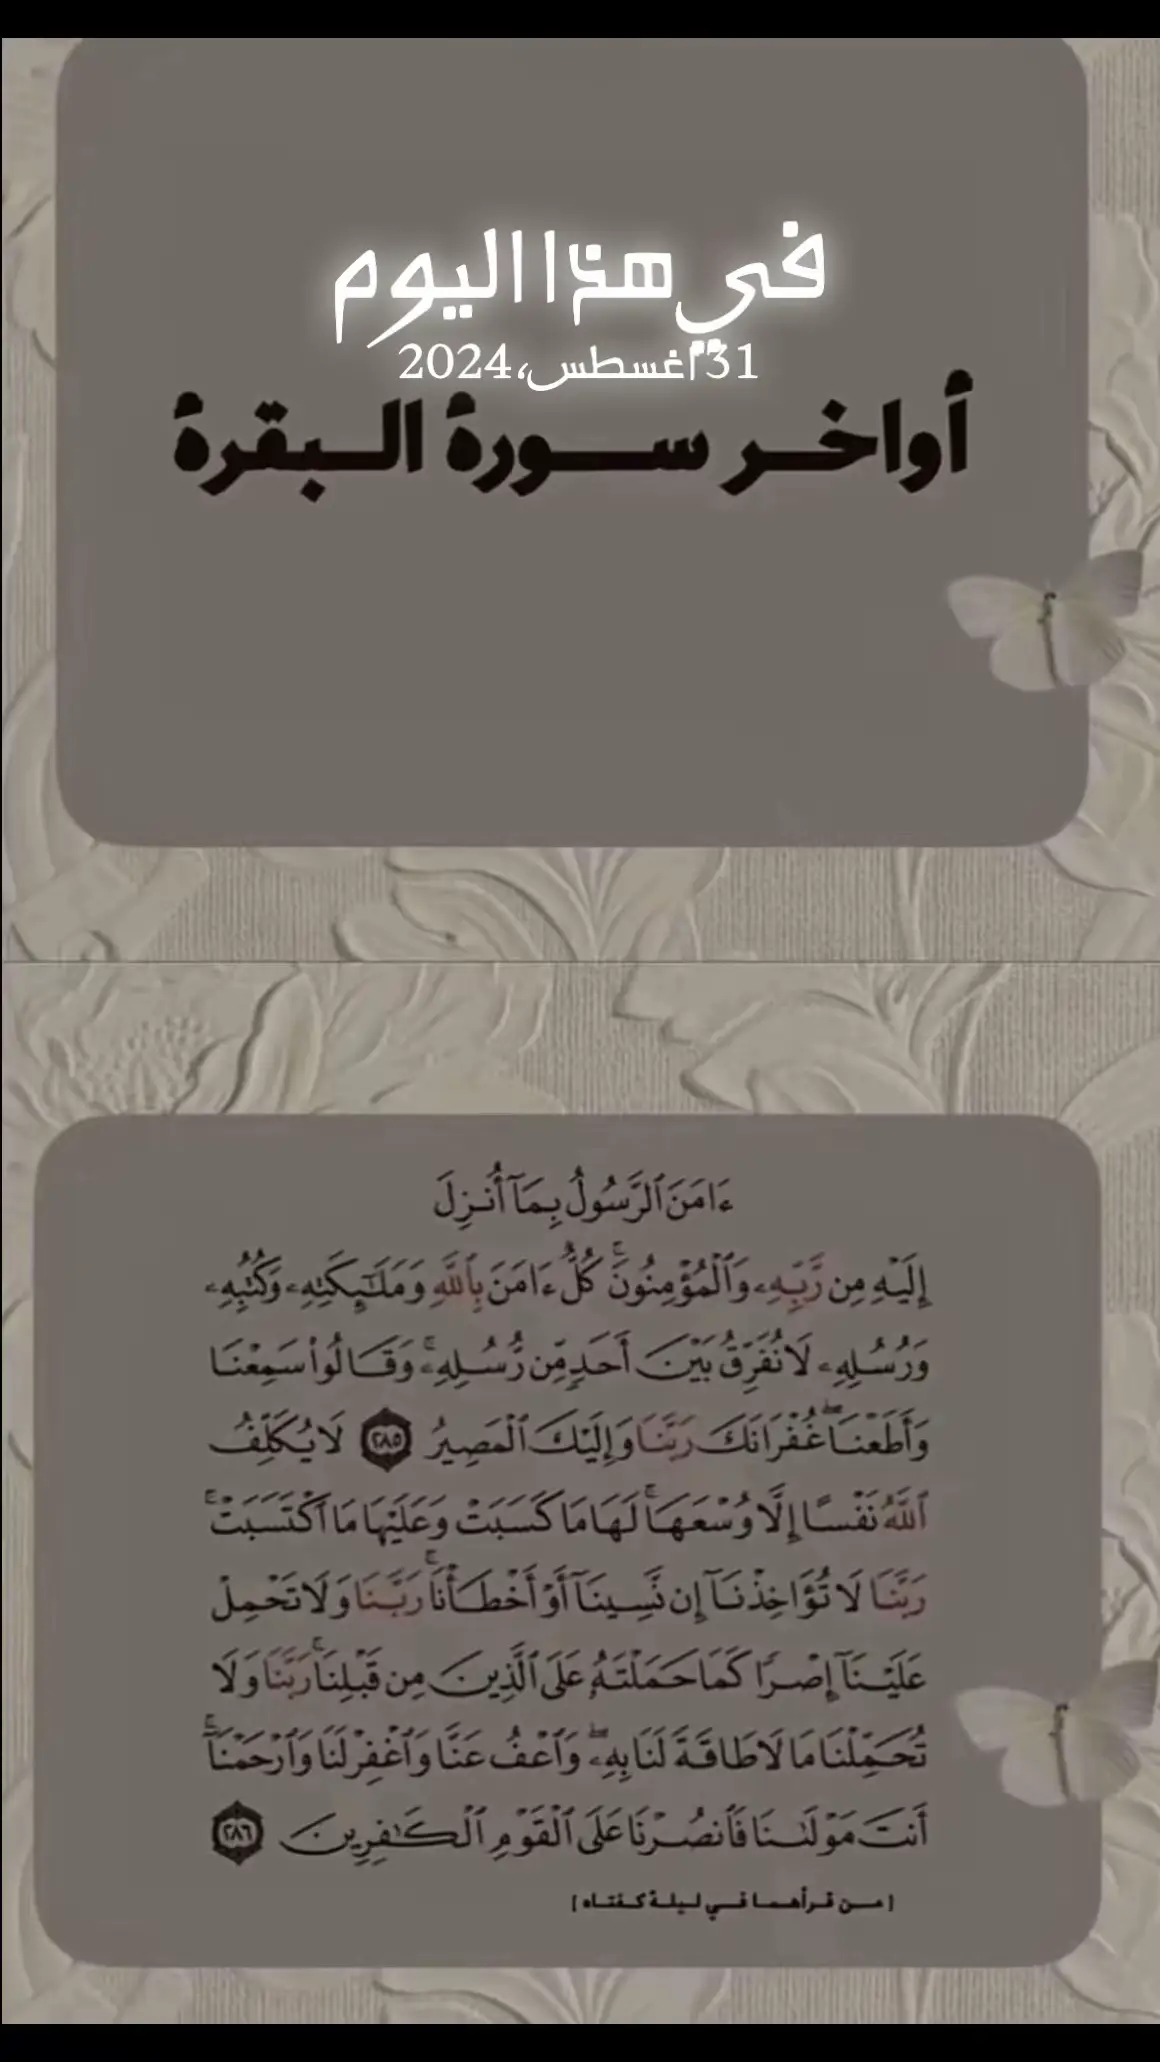 في هذا اليوم
31 أغسطس، 2024
أواخر سورة البقرة
ءَامَنَ ٱلرَّسُولُ بِمَآ أُنزِلَ
إِلَيْهِ مِن رَّبِّهِۦ وَٱلْمُؤْمِنُونَۚ كُلٌّ ءَامَنَ بِٱللَّهِ وَمَلَـٰٓئِكَتِهِۦ وَكُتُبِهِۦ
وَرُسُلِهِۦ لَا نُفَرِّقُ بَيْنَ أَحَدٍ مِّن رُّسُلِهِۦۚ وَقَالُوا۟ سَمِعْنَا
وَأَطَعْنَاۖ غُفْرَانَكَ رَبَّنَا وَإِلَيْكَ ٱلْمَصِيرُ ٢٨٥ لَا يُكَلِّفُ
ٱللَّهُ نَفْسًا إِلَّا وُسْعَهَاۚ لَهَا مَا كَسَبَتْ وَعَلَيْهَا مَا ٱكْتَسَبَتْۗ
رَبَّنَا لَا تُؤَاخِذْنَآ إِن نَّسِينَآ أَوْ أَخْطَأْنَاۚ رَبَّنَا وَلَا تَحْمِلْ
عَلَيْنَآ إِصْرًا كَمَا حَمَلْتَهُۥ عَلَى ٱلَّذِينَ مِن قَبْلِنَاۚ رَبَّنَا وَلَا
تُحَمِّلْنَا مَا لَا طَاقَةَ لَنَا بِهِۦۖ وَٱعْفُ عَنَّا وَٱغْفِرْ لَنَا وَٱرْحَمْنَآۚ
أَنتَ مَوْلَىٰنَا فَٱنصُرْنَا عَلَى ٱلْقَوْمِ ٱلْكَـٰفِرِينَ ٢٨٦
[ من قرأهما في ليلة كفتاه ]